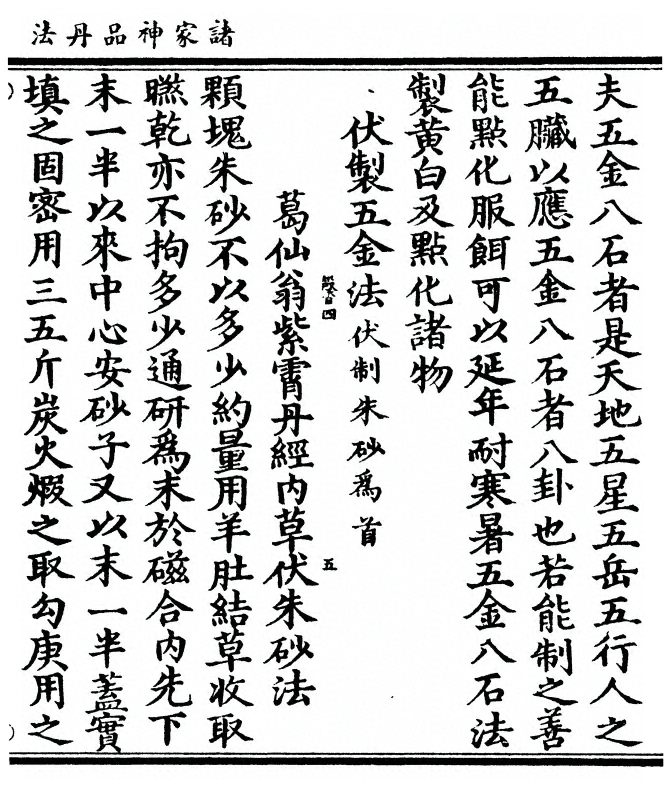 諸家神品丹法
夫五金八石者是天地五星五岳五行人之
五臟以應五金八石者八卦也若能制之善
能點化服餌可以延年耐寒暑五金八石法
製黃白及點化諸物
伏製五金法伏制朱砂為首
葛仙翁紫霄丹經內草伏朱砂法
顆塊朱砂不以多少約量用羊肚結草收取
㬠乾亦不拘多少通研為末於磁合內先下
末一半以來中心安砂子又以末一半蓋實
填之固宻用三五斤炭火煆之取勾庚用之
四
五